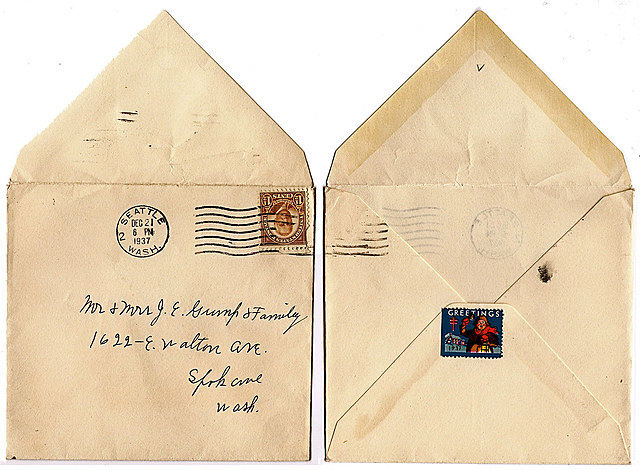 SEATTLE
DEC 21
6 PM
1937
2 WASH.
CENTS
Mr & Mrs J. E. Gump & Family
1622-E. Walton Ave.
Spokane
Wash.
GREETINGS
1937